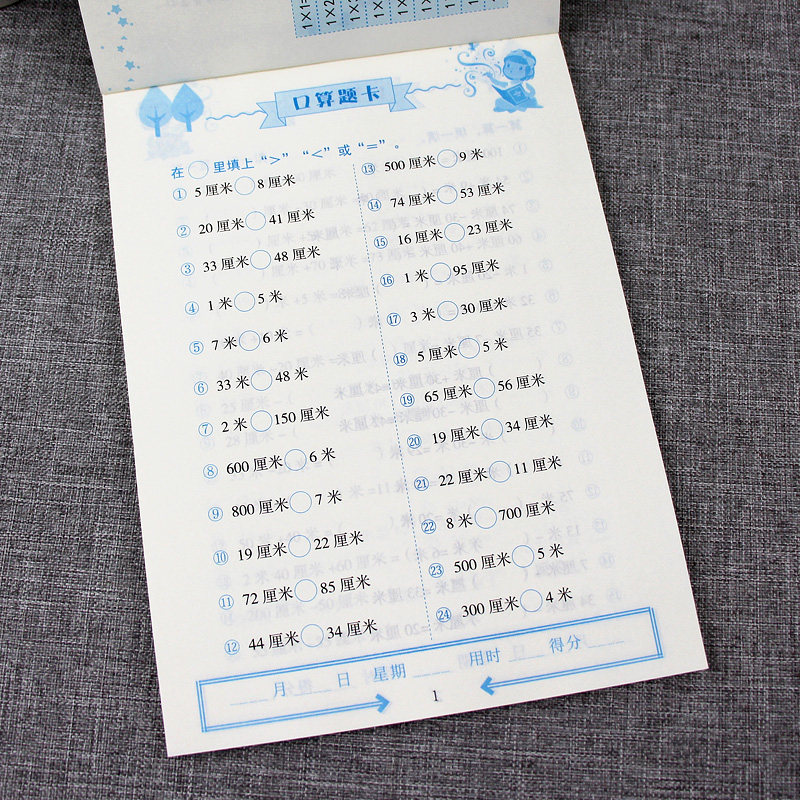 1×1=
1×2
1×
1×
1×
1×
口算题卡
在○里填上“>”“<”或“=”。
① 5厘米○8厘米
② 20厘米○41厘米
③ 33厘米○48厘米
④ 1米○5米
⑤ 7米○6米
⑥ 33米○48米
⑦ 2米○150厘米
⑧ 600厘米○6米
⑨ 800厘米○7米
⑩ 19厘米○22厘米
⑪ 72厘米○85厘米
⑫ 44厘米○34厘米
⑬ 500厘米○9米
⑭ 74厘米○53厘米
⑮ 16厘米○23厘米
⑯ 1米○95厘米
⑰ 3米○30厘米
⑱ 5厘米○5米
⑲ 65厘米○56厘米
⑳ 19厘米○34厘米
㉑ 22厘米○11厘米
㉒ 8米○700厘米
㉓ 500厘米○5米
㉔ 300厘米○4米
____月____日 星期____ 用时____得分____
1